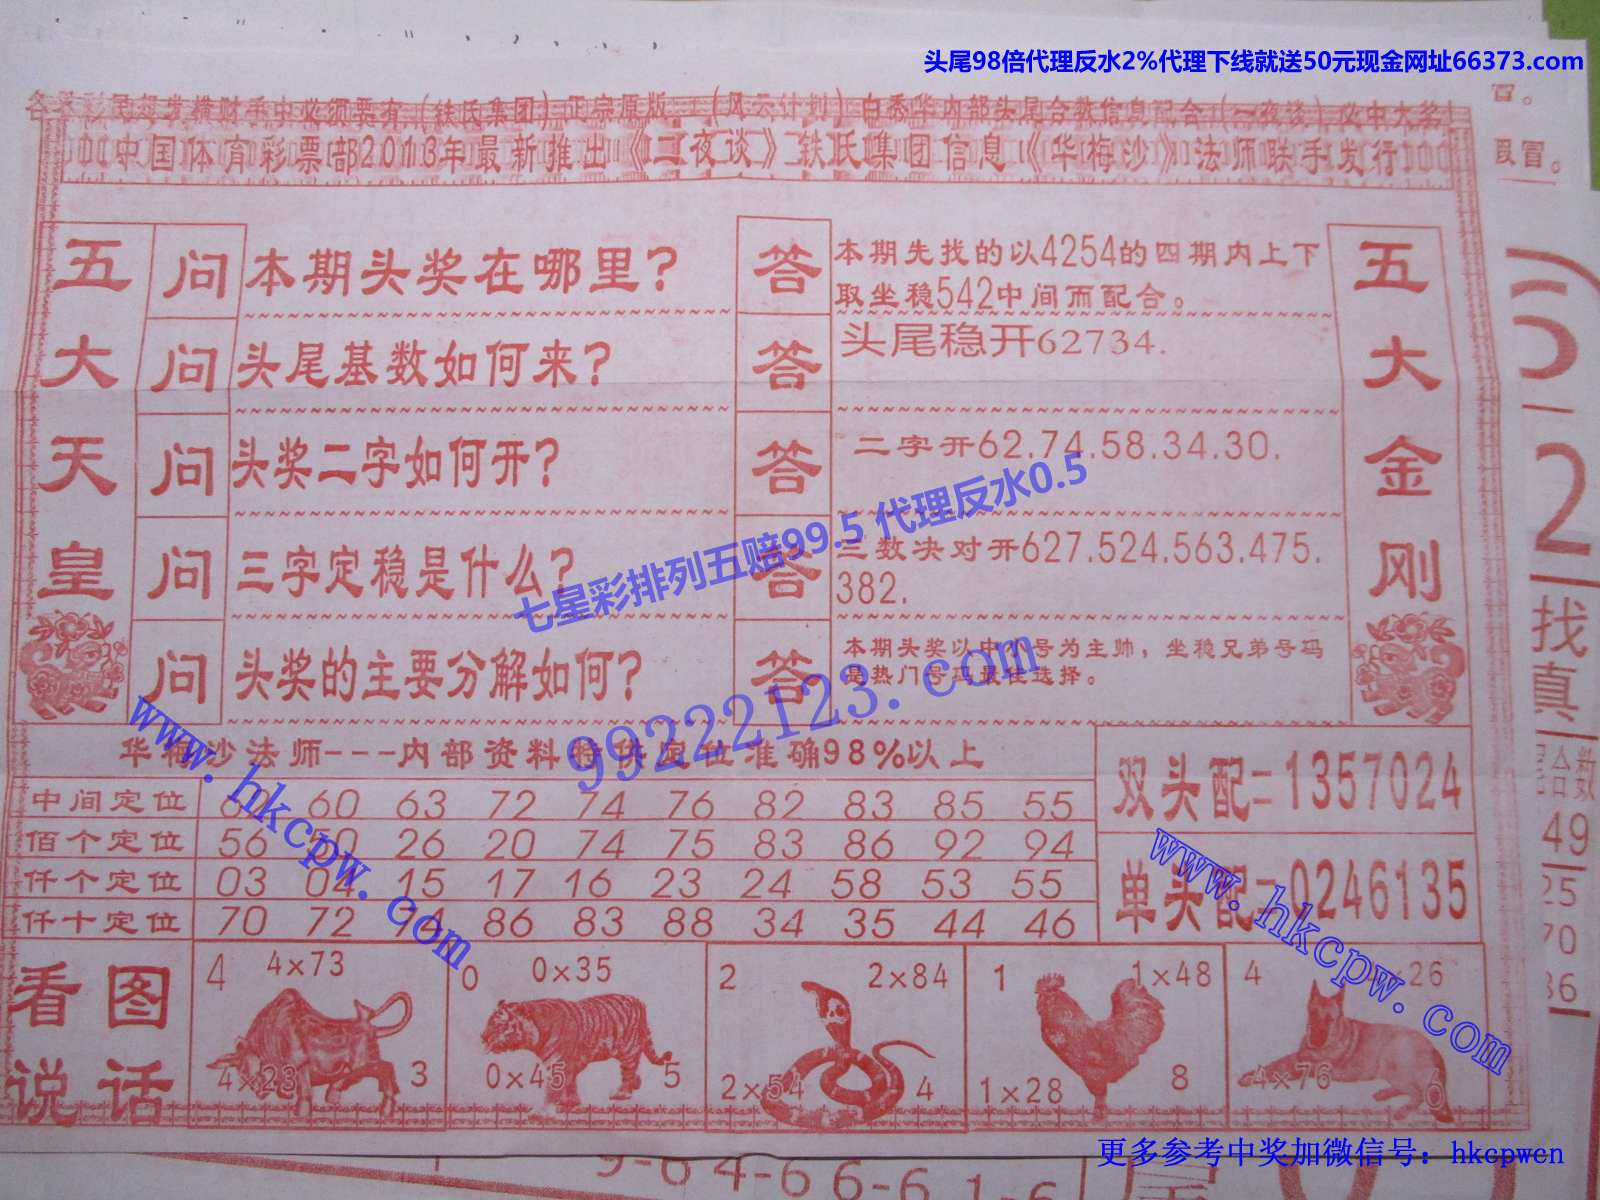 头尾98倍代理反水2%代理下线就送50元现金网址66373.com
各录彩民想发横财手中必须要有(铁氏集团)正宗原版:(风云计划)白秀华内部头尾合数信息配合(一夜谈)必中大奖!
中国体育彩票部2013年最新推出《二夜谈》铁氏集团信息《华梅沙》法师联手发行
冒。
假冒。
五大天皇
问 本期头奖在哪里?
答 本期先找的以4254的四期内上下
取坐稳542中间而配合。
问 头尾基数如何来?
答 头尾稳开62734.
问 头奖二字如何开?
答 二字开62.74.58.34.30.
问 三字定稳是什么?
答 三数决对开627.524.563.475.
382.
问 头奖的主要分解如何?
答 本期头奖以中小号为主帅，坐稳兄弟号码
是热门号码最佳选择。
五大金刚
七星彩排列五赔99.5 代理反水0.5
99222123.com
www.hkcpw.com
华梅沙法师---内部资料特供定位准确98%以上
中间定位 60 63 72 74 76 82 83 85 55
佰个定位 56 26 20 74 75 83 86 92 94
仟个定位 03 04 15 17 16 23 24 58 53 55
仟十定位 70 72 74 86 83 88 34 35 44 46
双头配=1357024
单头配=0246135
www.hkcpw.com
看图
说话
4 4×73
4×23 3
0 0×35
0×45 5
2 2×84
2×54 4
1 1×48
1×28 8
4 ×26
4×76 6
2
找
真
合数
49
25
70
36
更多参考中奖加微信号：hkcpwcn
9-64-66-61-6